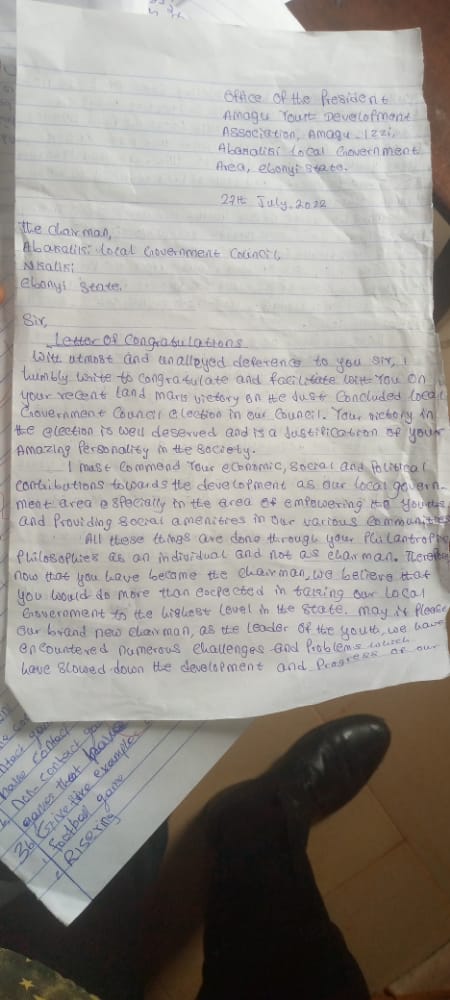 Office of the President
Amagu Yout Development
Association, Amagu-Izzi,
Abakaliki Local Government
Area, ebonyi state.
27th July, 2022
The Chairman,
Abakaliki Local Government Council,
Nkaliki
ebonyi state.
Sir,
Letter of Congratulations
With utmost and unalloyed deference to you sir, I
humbly write to congratulate and facilitate with you on
your recent land mark victory on the Just Concluded local
Government Council election in our Council. Your victory in
the election is well deserved and is a Justification of your
Amazing Personality in the society.
I must Commend your economic, social and Political
contributions towards the development as our local govern-
ment area especially in the area of empowering the youths
and Providing social amenities in our various communities
All these things are done through your Philantropic
Philosophies as an individual and not as chairman. Therefore
now that you have become the chairman, we believe that
you would do more than expected in taking our Local
Government to the highest level in the state. may it Please
our brand new chairman, as the leader of the youth, we have
encountered numerous challenges and Problems which
have slowed down the development and Progress of our
Non-contact
games that
3b) Give five examples
Football game